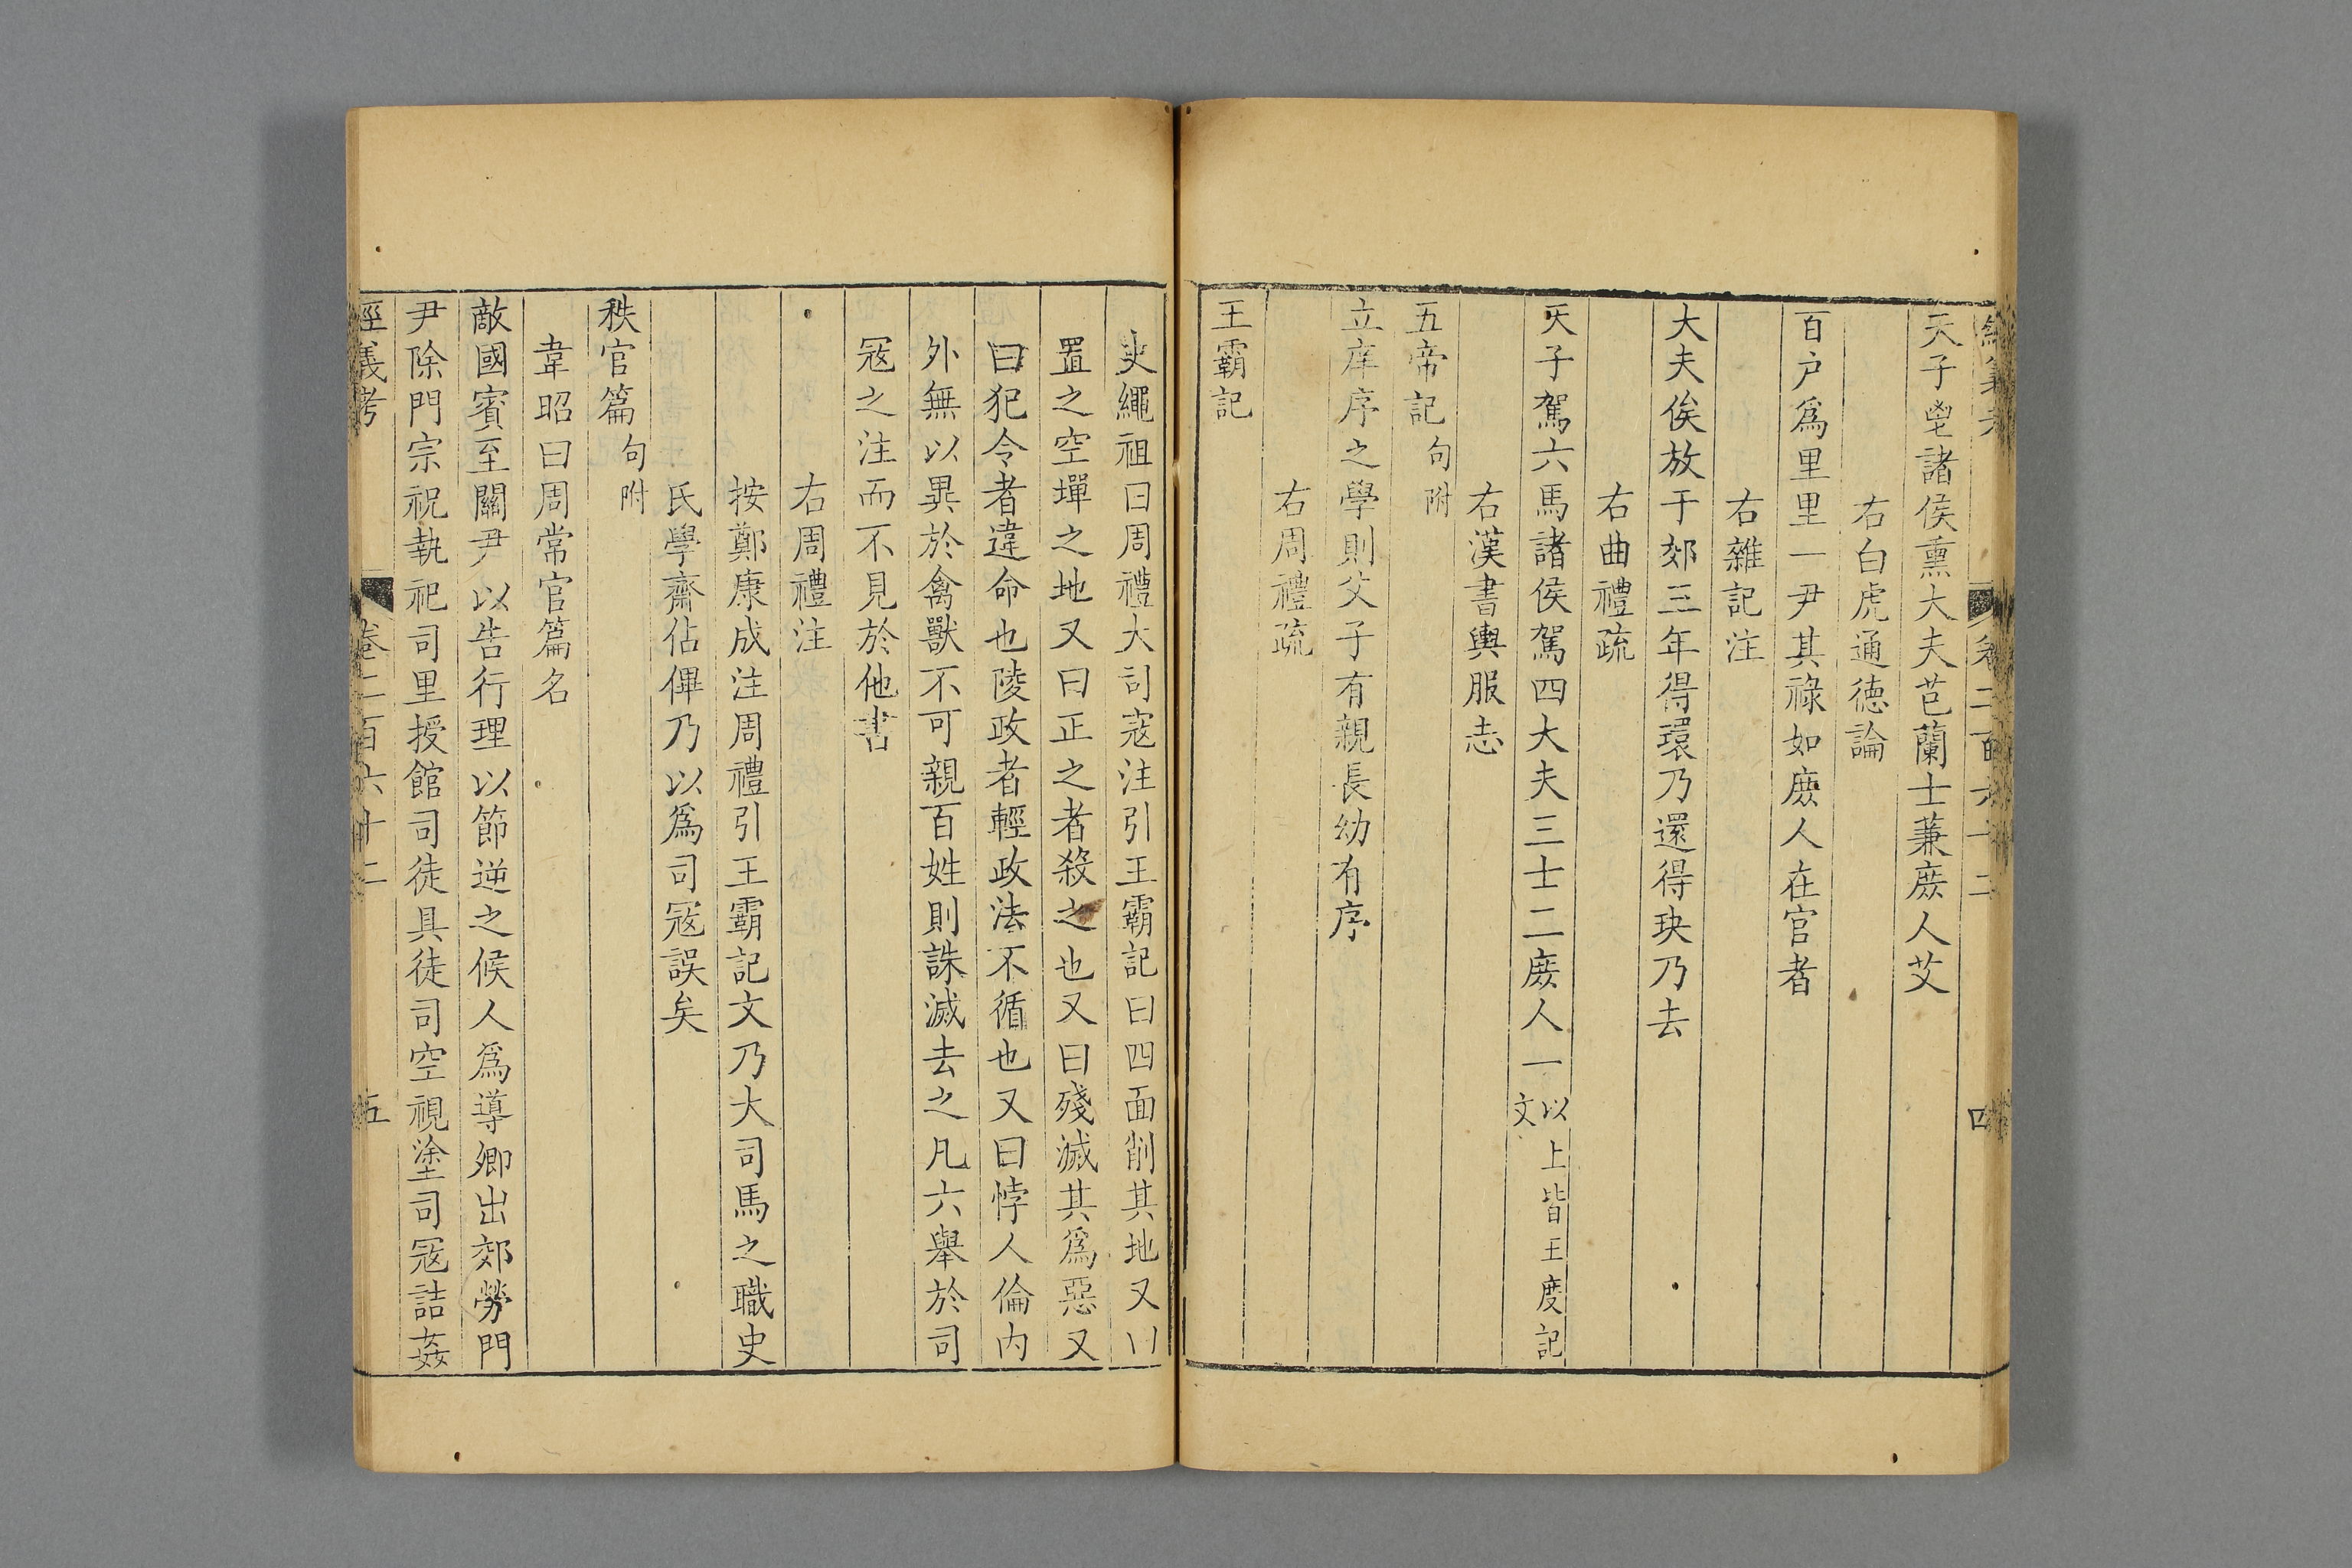 經義考 卷二百六十二 四
天子鬯諸侯熏大夫芑蘭士蒹庶人艾
右白虎通德論
百户爲里里一尹其祿如庶人在官者
右雜記注
大夫俟放于郊三年得環乃還得玦乃去
右曲禮疏
天子駕六馬諸侯駕四大夫三士二庶人一以上皆王度記文
右漢書輿服志
五帝記句附
立庠序之學則父子有親長幼有序
右周禮疏
王霸記
史繩祖曰周禮大司寇注引王霸記曰四面削其地又曰
置之空墠之地又曰正之者殺之也又曰殘滅其爲惡又
曰犯令者違命也陵政者輕政法不循也又曰悖人倫内
外無以異於禽獸不可親百姓則誅滅去之凡六舉於司
寇之注而不見於他書
右周禮注
按鄭康成注周禮引王霸記文乃大司馬之職史
氏學齋佔俾乃以爲司寇誤矣
秩官篇句附
韋昭曰周常官篇名
敵國賓至關尹以告行理以節逆之候人爲導卿出郊勞門
尹除門宗祝執祀司里授館司徒具徒司空視塗司寇詰姦
經義考 卷二百六十二 五